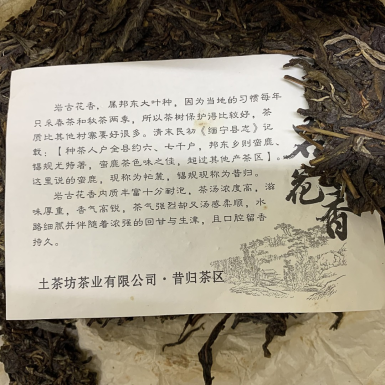 岩古花香，属邦东大叶种，因为当地的习惯每年
只采春茶和秋茶两季，所以茶树保护得比较好，茶
质比其他村寨要好很多。清末民初《缅宁县志》记
载：【种茶人户全县约六、七千户，邦东乡则蛮鹿、
锡规尤特著，蛮鹿茶色味之佳，超过其他产茶区】。
这里说的蛮鹿，现称为忙麓，锡规现称为昔归。
岩古花香内质丰富十分耐泡，茶汤浓度高，滋
味厚重，香气高锐，茶气强烈却又汤感柔顺，水
路细腻并伴随着浓强的回甘与生津，且口腔留香
持久。
土茶坊茶业有限公司·昔归茶区
花香